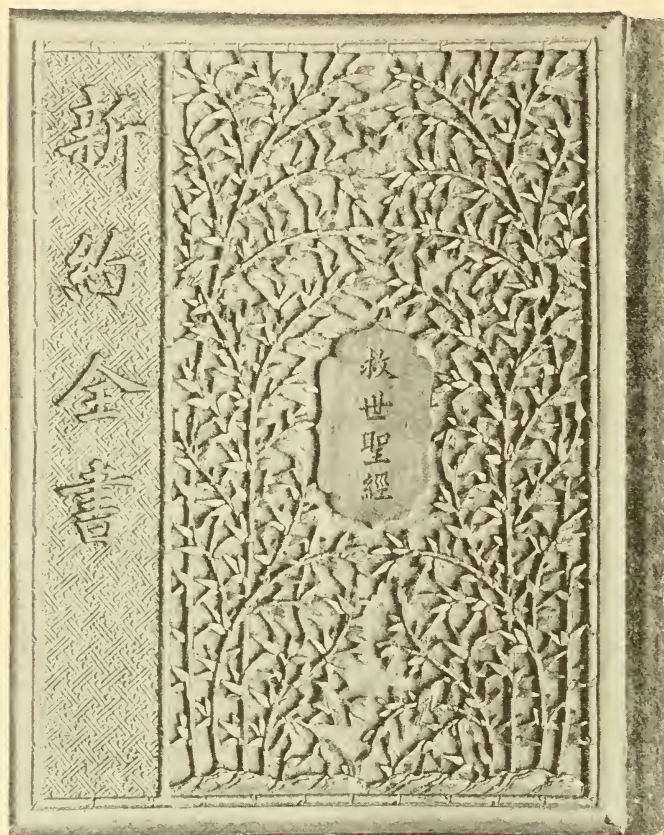 新約全書
救世聖經